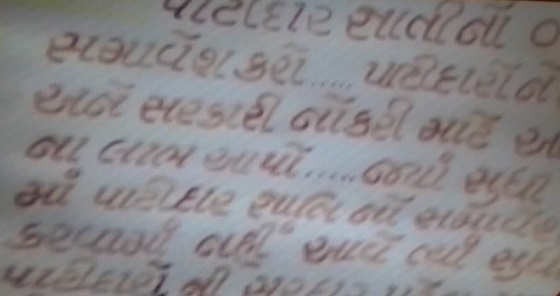 પાટીદાર જ્ઞાતીનો
સમાવેશ કરો..... પાટીદારોને
અને સરકારી નોકરી માટે
ના લાભ આપો.....જ્યાં સુધી
માં પાટીદાર જ્ઞાતિ નો સમાવેશ
કરવામાં નહીં આવે ત્યાં સુધી
પાટીદારો ની સરકાર